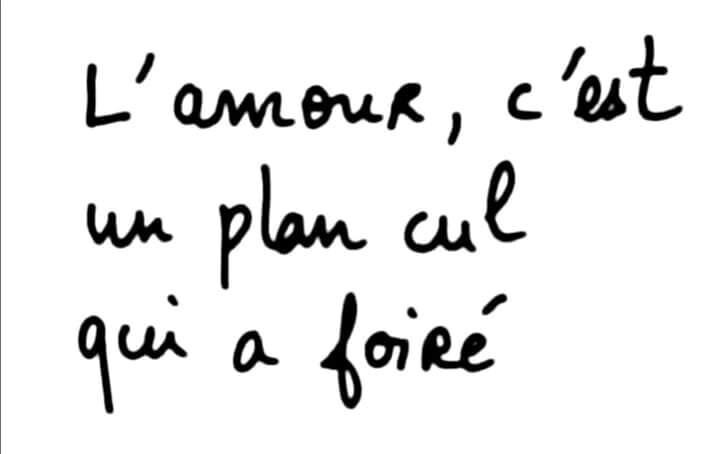 L'amour, c'est
un plan cul
qui a foiré